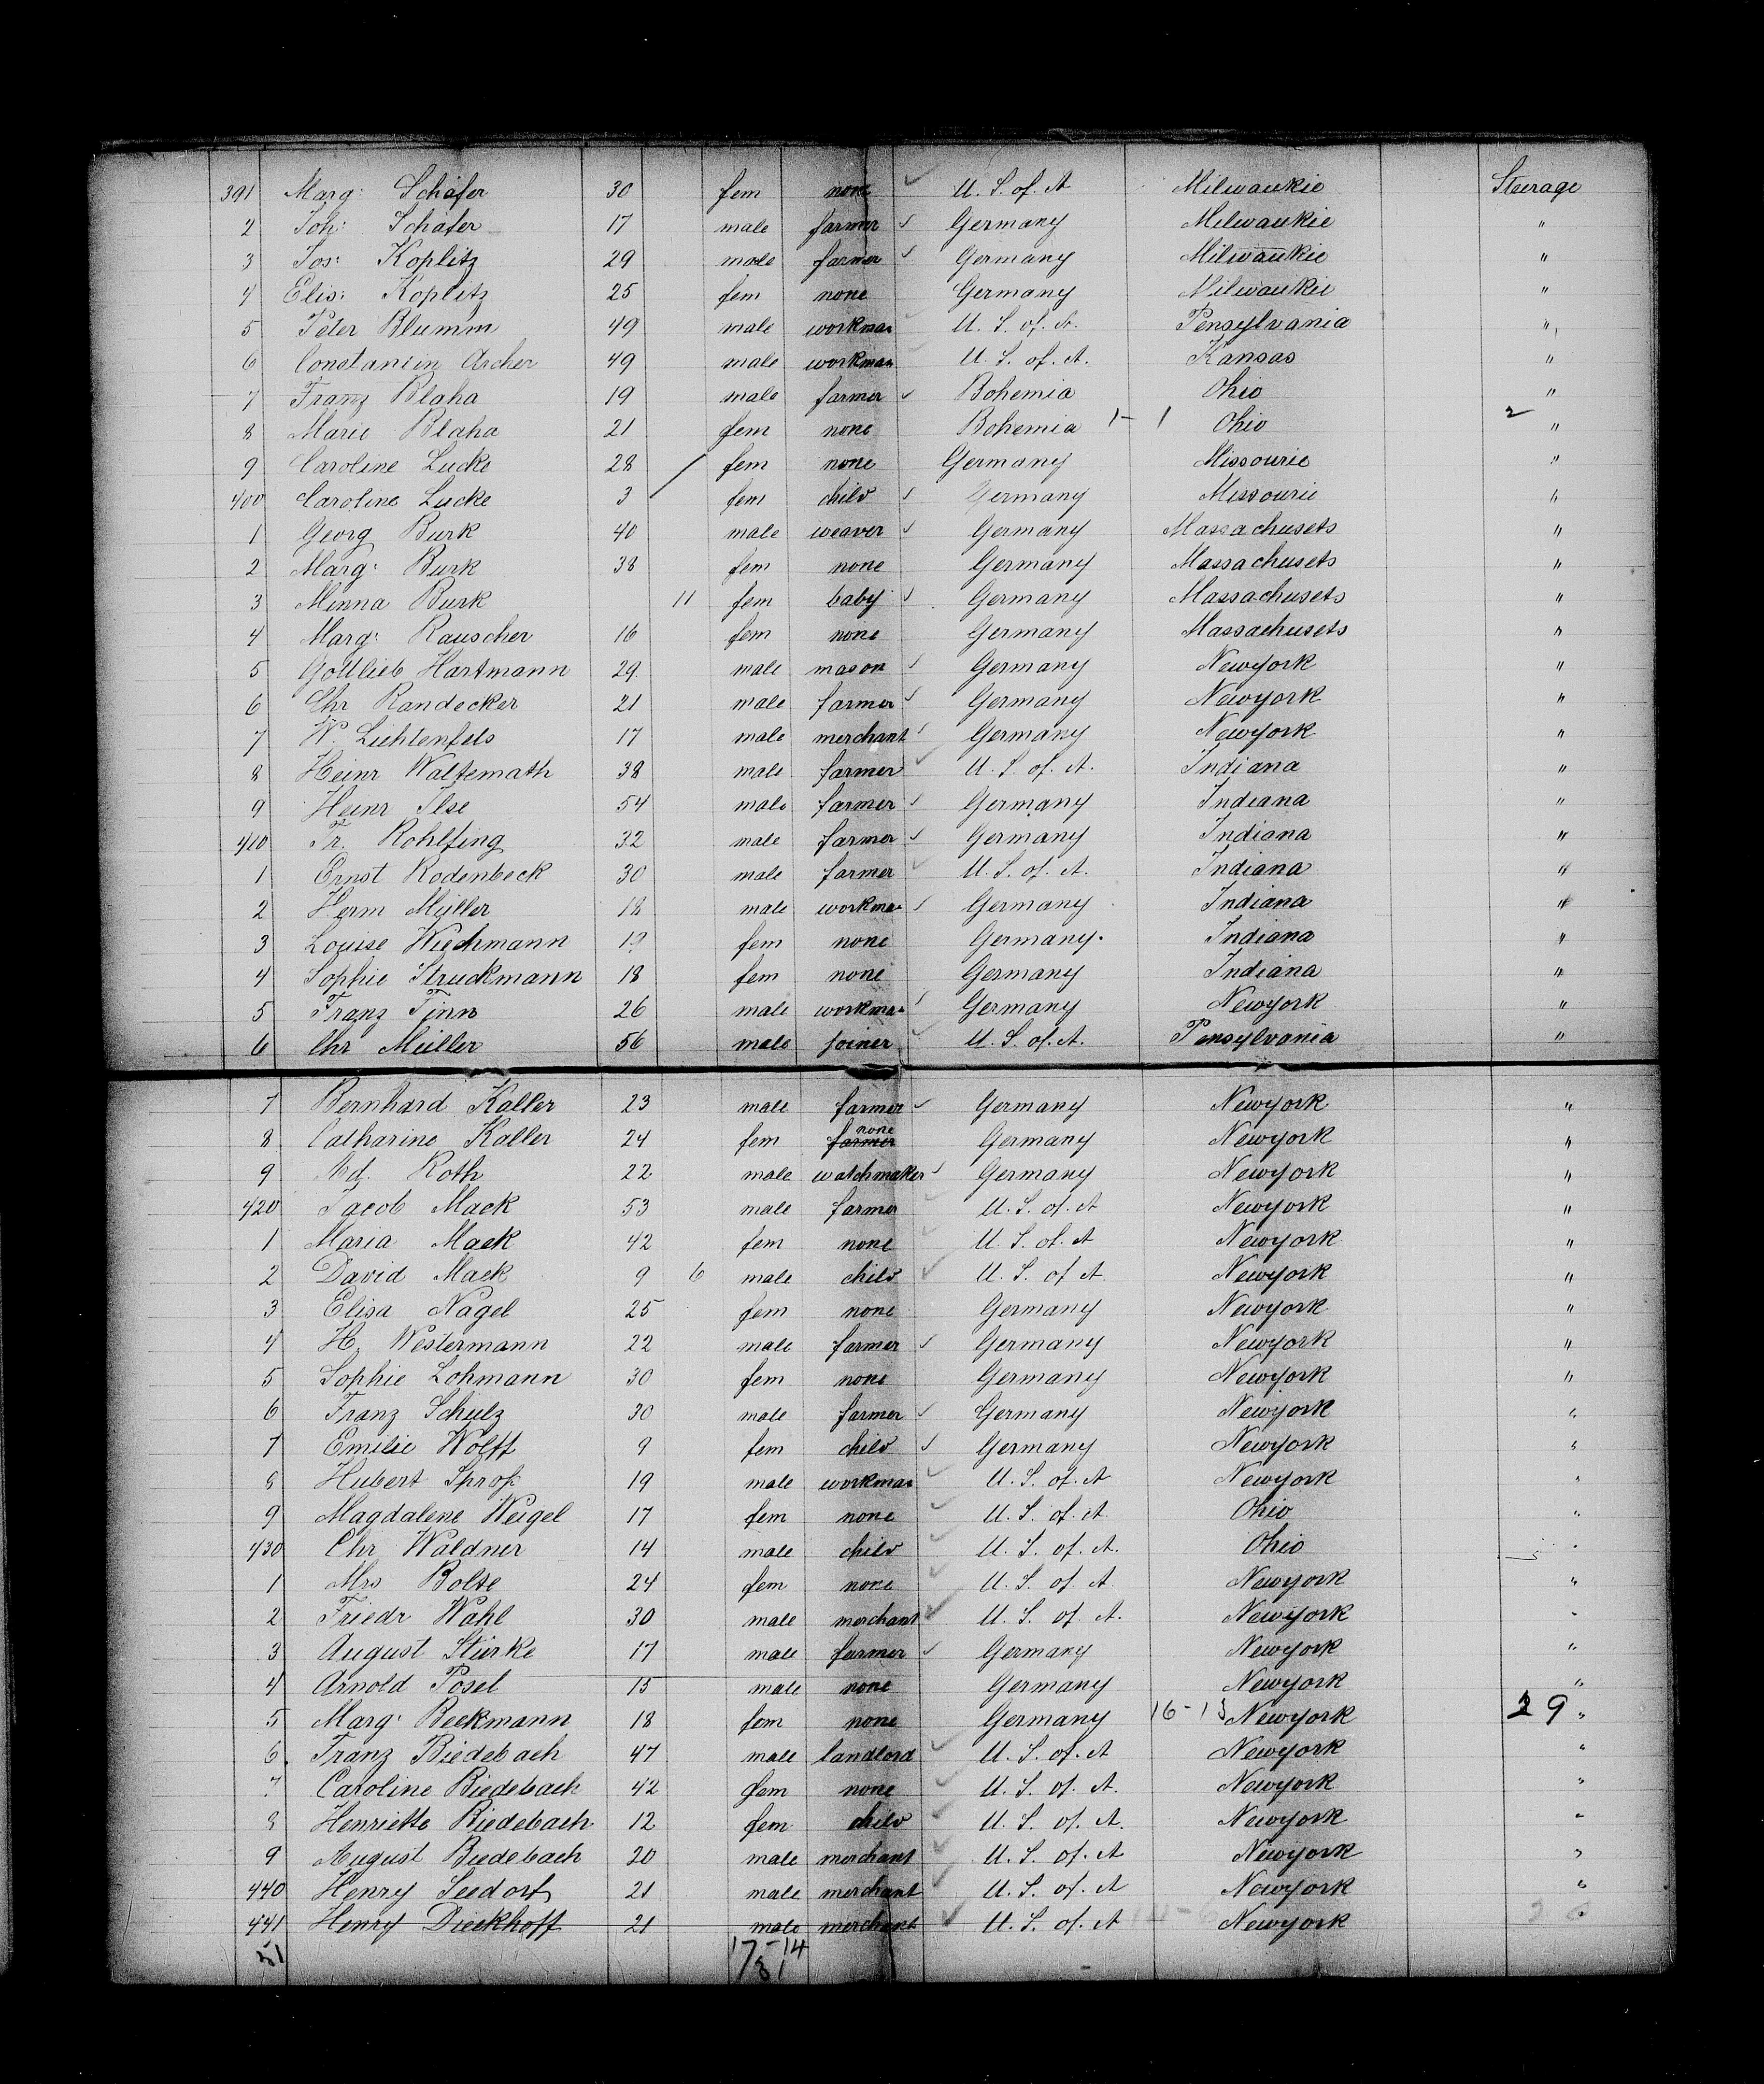 391 Marg: Schäfer 30 fem none ✓ U. S. of. A Milwaukie Steerage
2 Joh: Schäfer 17 male farmer ✓ Germany Milwaukie "
3 Jos: Koplitz 29 male farmer ✓ Germany Milwaukie "
4 Elis: Koplitz 25 fem none Germany Milwaukie "
5 Peter Blumm 49 male workman ✓ U. S. of. A. Pensylvania "
6 Constantin Archer 49 male workman ✓ U. S. of. A. Kansas "
7 Franz Blaha 19 male farmer ✓ Bohemia Ohio "
8 Marie Blaha 21 fem none Bohemia 1- 1 Ohio 2 "
9 Caroline Lucke 28 fem none Germany Missourie "
400 Caroline Lucke 3 fem child ✓ Germany Missourie "
1 Georg Burk 40 male weaver ✓ Germany Massachusets "
2 Marg: Burk 38 fem none Germany Massachusets "
3 Minna Burk 11 fem baby ✓ Germany Massachusets "
4 Marg: Rauscher 16 fem none Germany Massachusets "
5 Gottlieb Hartmann 29 male mason ✓ Germany Newyork "
6 Chr Randecker 21 male farmer ✓ Germany Newyork "
7 W. Lichtenfels 17 male merchant ✓ Germany Newyork "
8 Heinr Waltemath 38 male farmer ✓ U. S. of. A. Indiana "
9 Heinr Ilse 54 male farmer ✓ Germany Indiana "
410 Fr. Rohlfing 32 male farmer ✓ Germany Indiana "
1 Ernst Rodenbeck 30 male farmer ✓ U. S. of. A. Indiana "
2 Herm Müller 18 male workman ✓ Germany Indiana "
3 Louise Wiechmann fem none Germany. Indiana "
4 Sophie Struckmann 18 fem none Germany Indiana "
5 Franz Finn 26 male workman ✓ Germany Newyork "
6 Chr Müller 56 male joiner ✓ U. S. of. A. Pensylvania "
7 Bernhard Kaller 23 male farmer ✓ Germany Newyork "
8 Catharine Kaller 24 fem farmer none Germany Newyork "
9 Ad. Roth 22 male watchmaker ✓ Germany Newyork "
420 Jacob Mack 53 male farmer ✓ U. S. of. A Newyork "
1 Maria Mack 42 fem none ✓ U. S. of. A Newyork "
2 David Mack 9 6 male child ✓ U. S. of A Newyork "
3 Elisa Nagel 25 fem none Germany Newyork "
4 H. Westermann 22 male farmer ✓ Germany Newyork "
5 Sophie Lohmann 30 fem none Germany Newyork "
6 Franz Schulz 30 male farmer ✓ Germany Newyork "
7 Emilie Wolff 9 fem child ✓ Germany Newyork "
8 Hubert 19 male workman ✓ U. S. of. A Newyork "
9 Magdalene Weigel 17 fem none ✓ U. S. of. A Ohio "
430 Chr Waldner 14 male child ✓ U. S. of. A. Ohio "
1 Mrs Bolte 24 fem none ✓ U. S. of. A Newyork "
2 Friedr Wahl 30 male merchant ✓ U. S. of. A. Newyork "
3 August Stürke 17 male farmer ✓ Germany Newyork "
4 Arnold Posel 15 male none Germany Newyork "
5 Marg: Beckmann 18 fem none Germany 16-13 Newyork 29 "
6 Franz Biedebach 47 male landlord ✓ U. S. of. A Newyork "
7 Caroline Biedebach 42 fem none ✓ U. S. of. A. Newyork "
8 Henriette Biedebach 12 fem child ✓ U. S. of. A. Newyork "
9 August Biedebach 20 male merchant ✓ U. S. of. A Newyork "
440 Henry Seedorf 21 male merchant ✓ U. S. of. A Newyork "
441 Henry Dieckhoff 21 male merchant ✓ U. S. of. A Newyork "
51 17-14